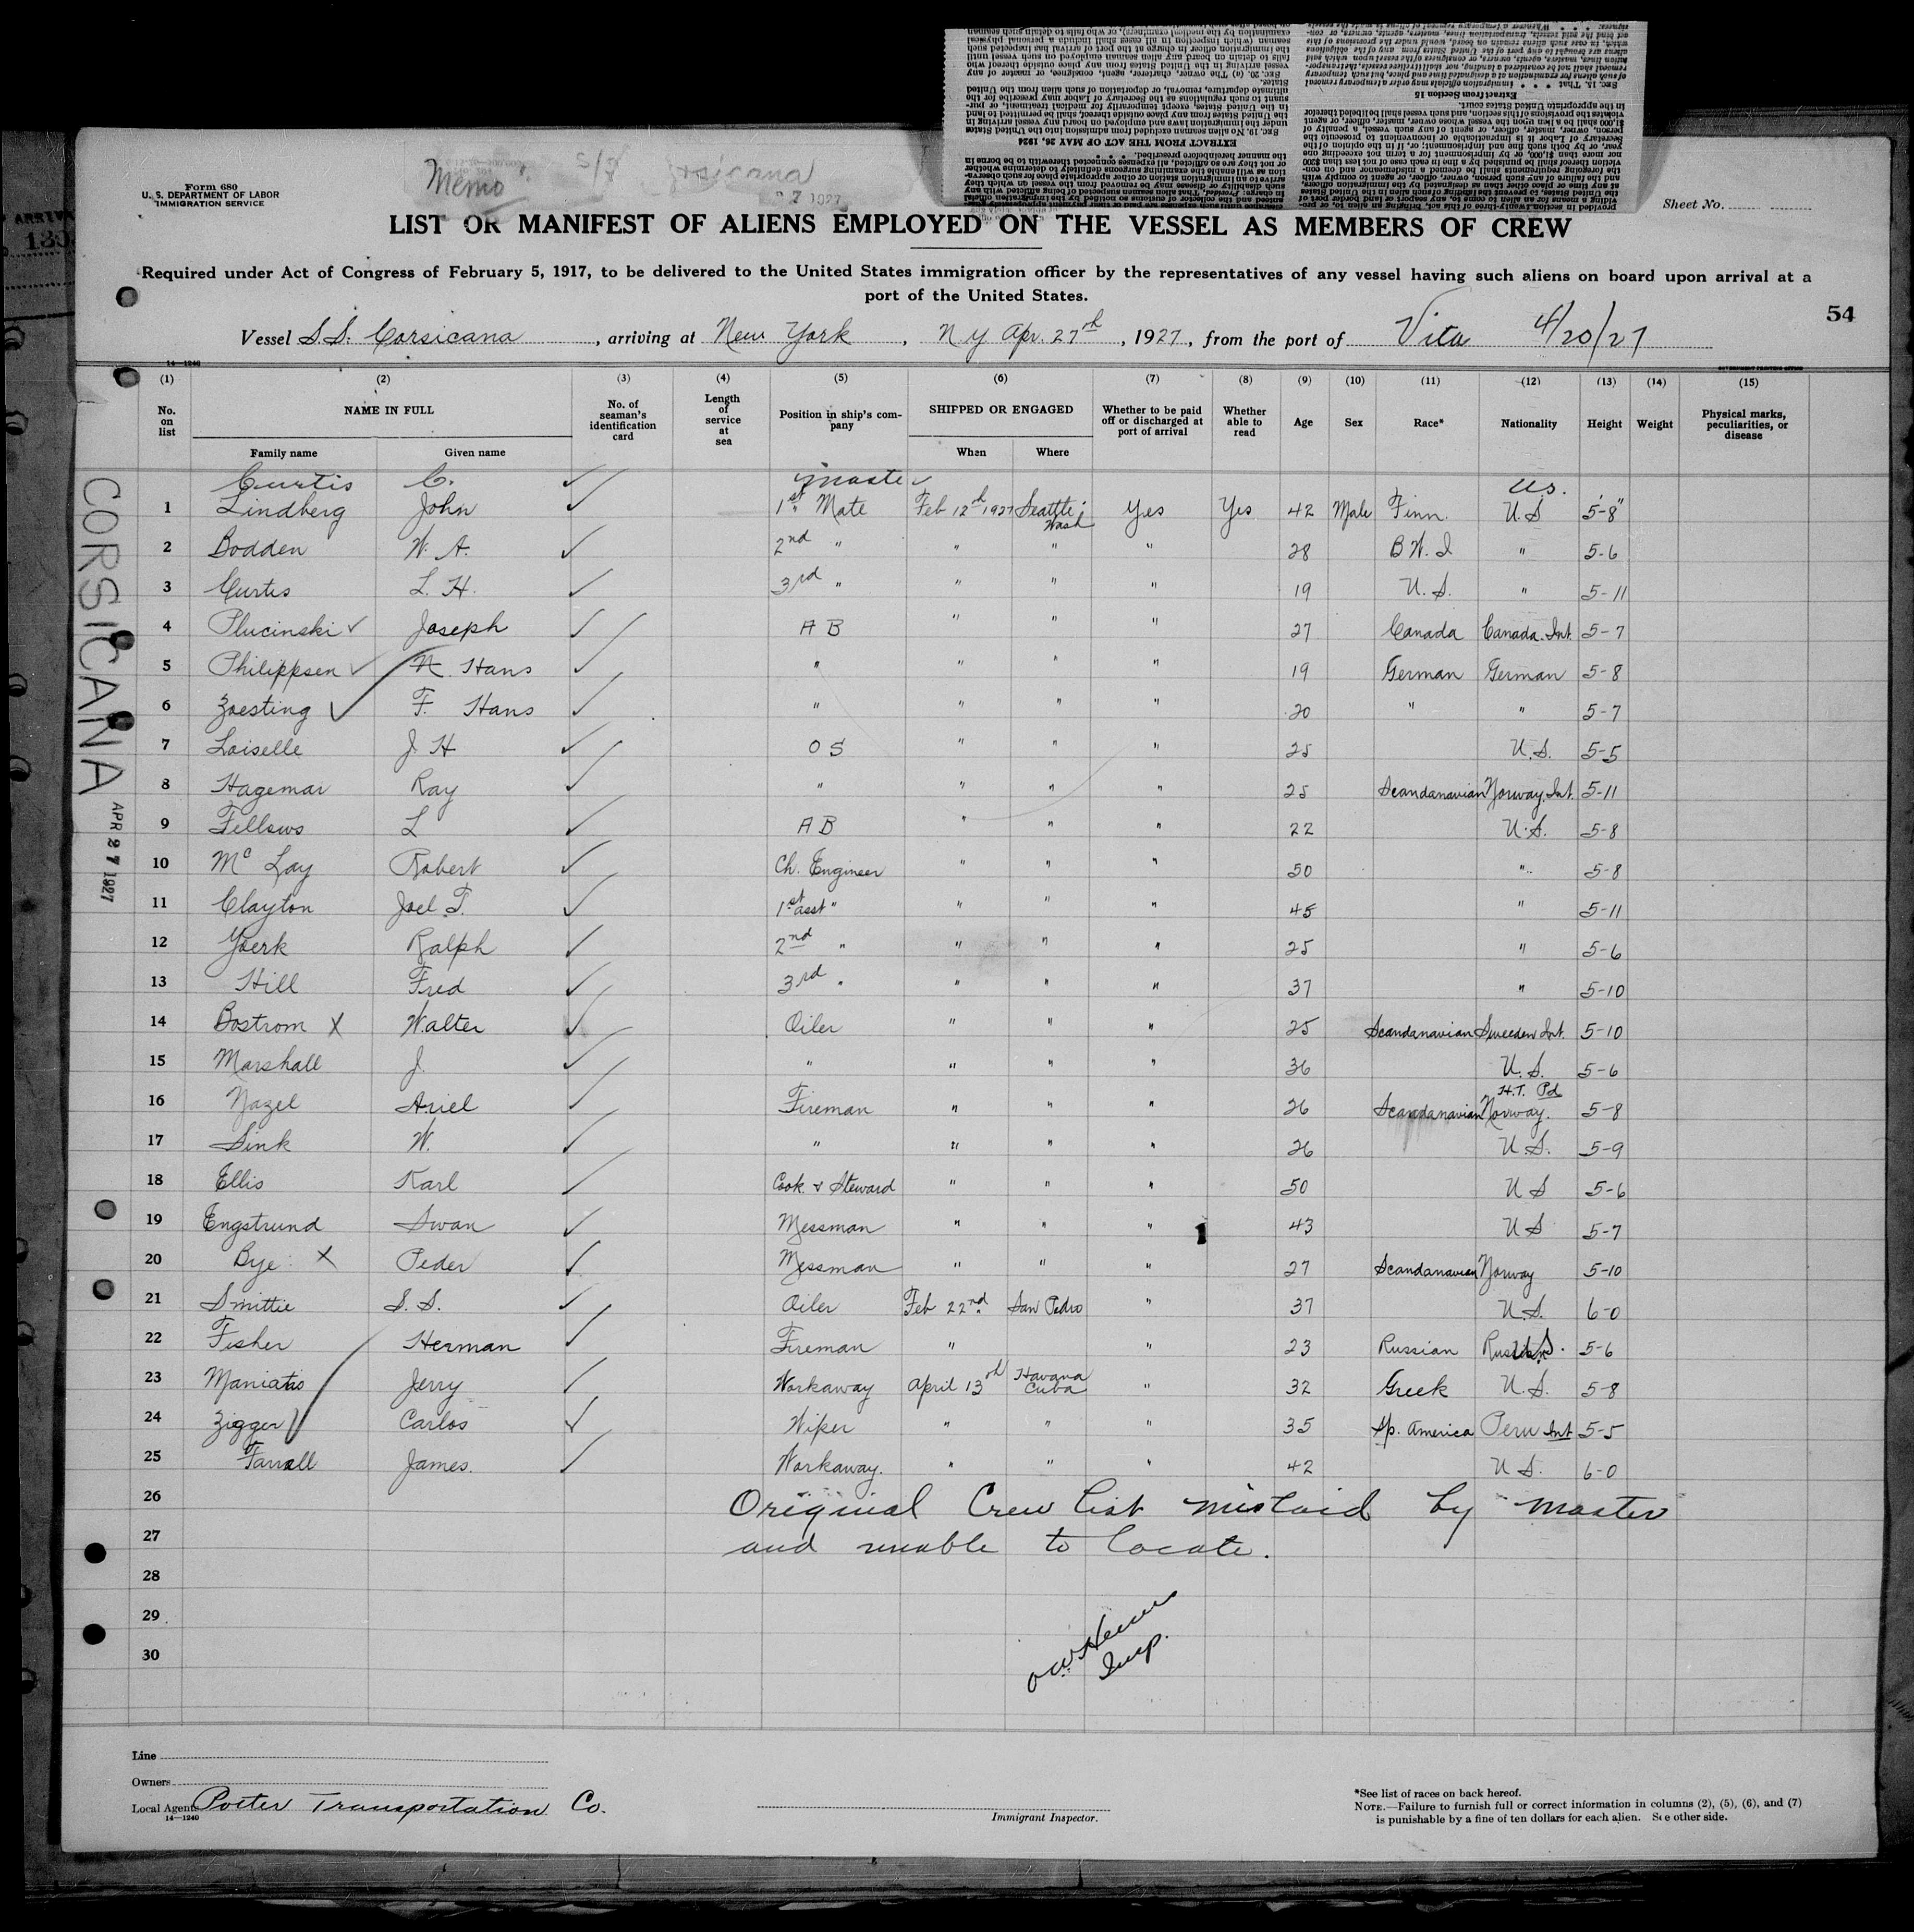 Form 680
U. S. DEPARTMENT OF LABOR
IMMIGRATION SERVICE
Memo
Sheet No.
LIST OR MANIFEST OF ALIENS EMPLOYED ON THE VESSEL AS MEMBERS OF CREW
Required under Act of Congress of February 5, 1917, to be delivered to the United States immigration officer by the representatives of any vessel having such aliens on board upon arrival at a
port of the United States.
54
Vessel S.S. Corsicana, arriving at New York, N.Y. Apr. 27th, 1927, from the port of Vita 4/20/27
14—1240
GOVERNMENT PRINTING OFFICE
(1) (2) (3) (4) (5) (6) (7) (8) (9) (10) (11) (12) (13) (14) (15)
No. on list NAME IN FULL No. of seaman's identification card Length of service at sea Position in ship's company SHIPPED OR ENGAGED Whether to be paid off or discharged at port of arrival Whether able to read Age Sex Race* Nationality Height Weight Physical marks, peculiarities, or disease
Family name Given name When Where
Curtis C. ✓ Master U.S.
1 Lindberg John ✓ 1st Mate Feb 12th 1927 Seattle Wash Yes Yes 42 Male Finn. U.S 5-8"
2 Bodden W. A. ✓ 2nd " " " " 28 B W. I " 5-6
3 Curtis L. H. ✓ 3rd " " " " 19 U. S. " 5-11
4 Plucinski ✓ Joseph ✓ A B " " " 27 Canada Canada. Int. 5-7
5 Philippsen ✓ N. Hans ✓ " " " " 19 German German 5-8
6 Zoesting ✓ F. Hans ✓ " " " " 20 " " 5-7
7 Loiselle J H ✓ O S " " " 25 U.S. 5-5
8 Hagemar Ray ✓ " " " " 25 Scandanavian Norway. Int. 5-11
9 Fellows L ✓ A B " " " 22 U.S. 5-8
10 Mc Lay Robert ✓ Ch. Engineer " " " 50 " 5-8
11 Clayton Joel T. ✓ 1st asst " " " " 45 " 5-11
12 Yoerk Ralph ✓ 2nd " " " " 25 " 5-6
13 Hill Fred ✓ 3rd " " " " 37 " 5-10
14 Bostrom X Walter ✓ Oiler " " " 25 Scandanavian Sweeden Int. 5-10
15 Marshall J. ✓ " " " " 36 U.S. 5-6
H.T. Pd
16 Nazel Ariel ✓ Fireman " " " 26 Scandanavian Norway. 5-8
17 Sink W. ✓ " " " " 26 U.S. 5-9
18 Ellis Karl ✓ Cook & Steward " " " 50 U S 5-6
19 Engstrund Swan ✓ Messman " " " 43 U S 5-7
20 Bye X Peder ✓ Messman " " " 27 Scandanavian Norway 5-10
21 Smittie S. S. ✓ Oiler Feb 22nd San Pedro " 37 U.S. 6-0
22 Fisher Herman ✓ Fireman " " 23 Russian U.S. 5-6
23 Maniatis Jerry ✓ Workaway April 13th Havana Cuba " 32 Greek U.S. 5-8
24 Zigger ✓ Carlos ✓ Wiper " " " 35 Sp. America Peru Int 5-5
25 Farrell James. ✓ Workaway. " " " 42 U S. 6-0
26 Original Crew list mislaid by master
27 and unable to locate.
28
29
30
Insp.
CORSICANA
APR 27 1927
Line
Owners
Local Agents Porter Transportation Co.
14—1240
Immigrant Inspector.
*See list of races on back hereof.
NOTE.—Failure to furnish full or correct information in columns (2), (5), (6), and (7)
is punishable by a fine of ten dollars for each alien. See other side.